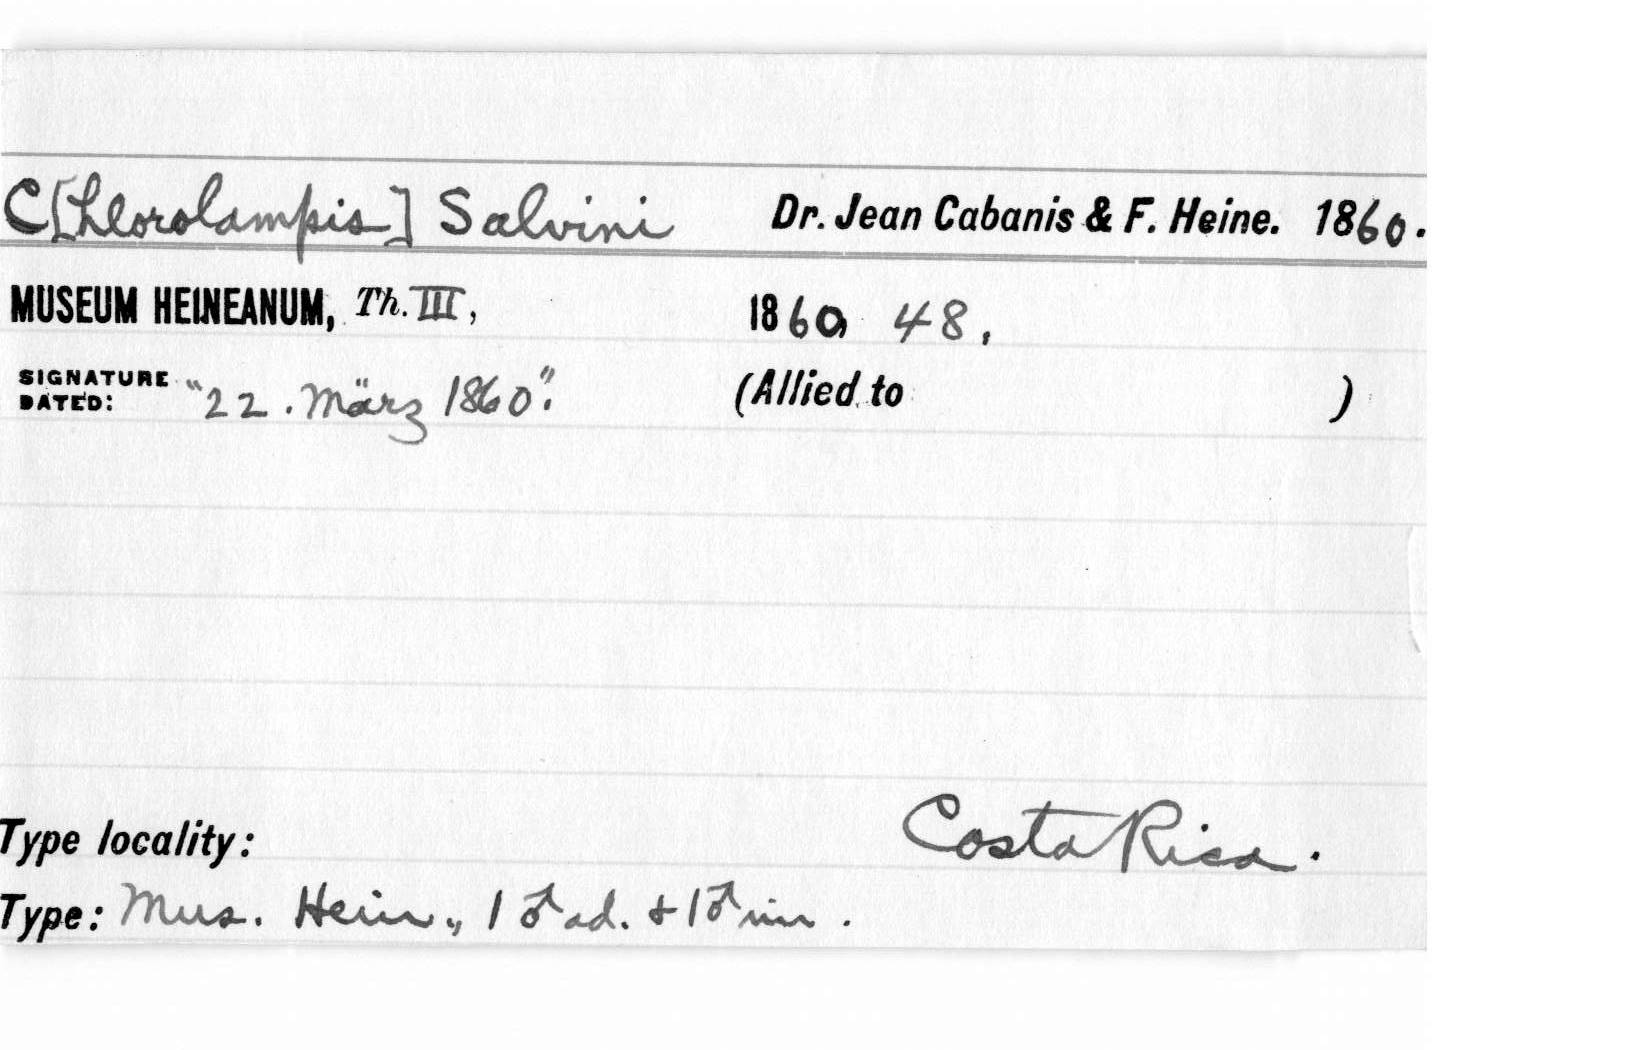 C[hlorolampis] Salvini Dr. Jean Cabanis & F. Heine. 1860.
MUSEUM HEINEANUM, Th. III, 1860, 48,
SIGNATURE DATED: "22. März 1860".
(Allied to )
Type locality: Costa Rica.
Type: Mus. Hein., 1 ♂ ad. & 1 ♂ im .